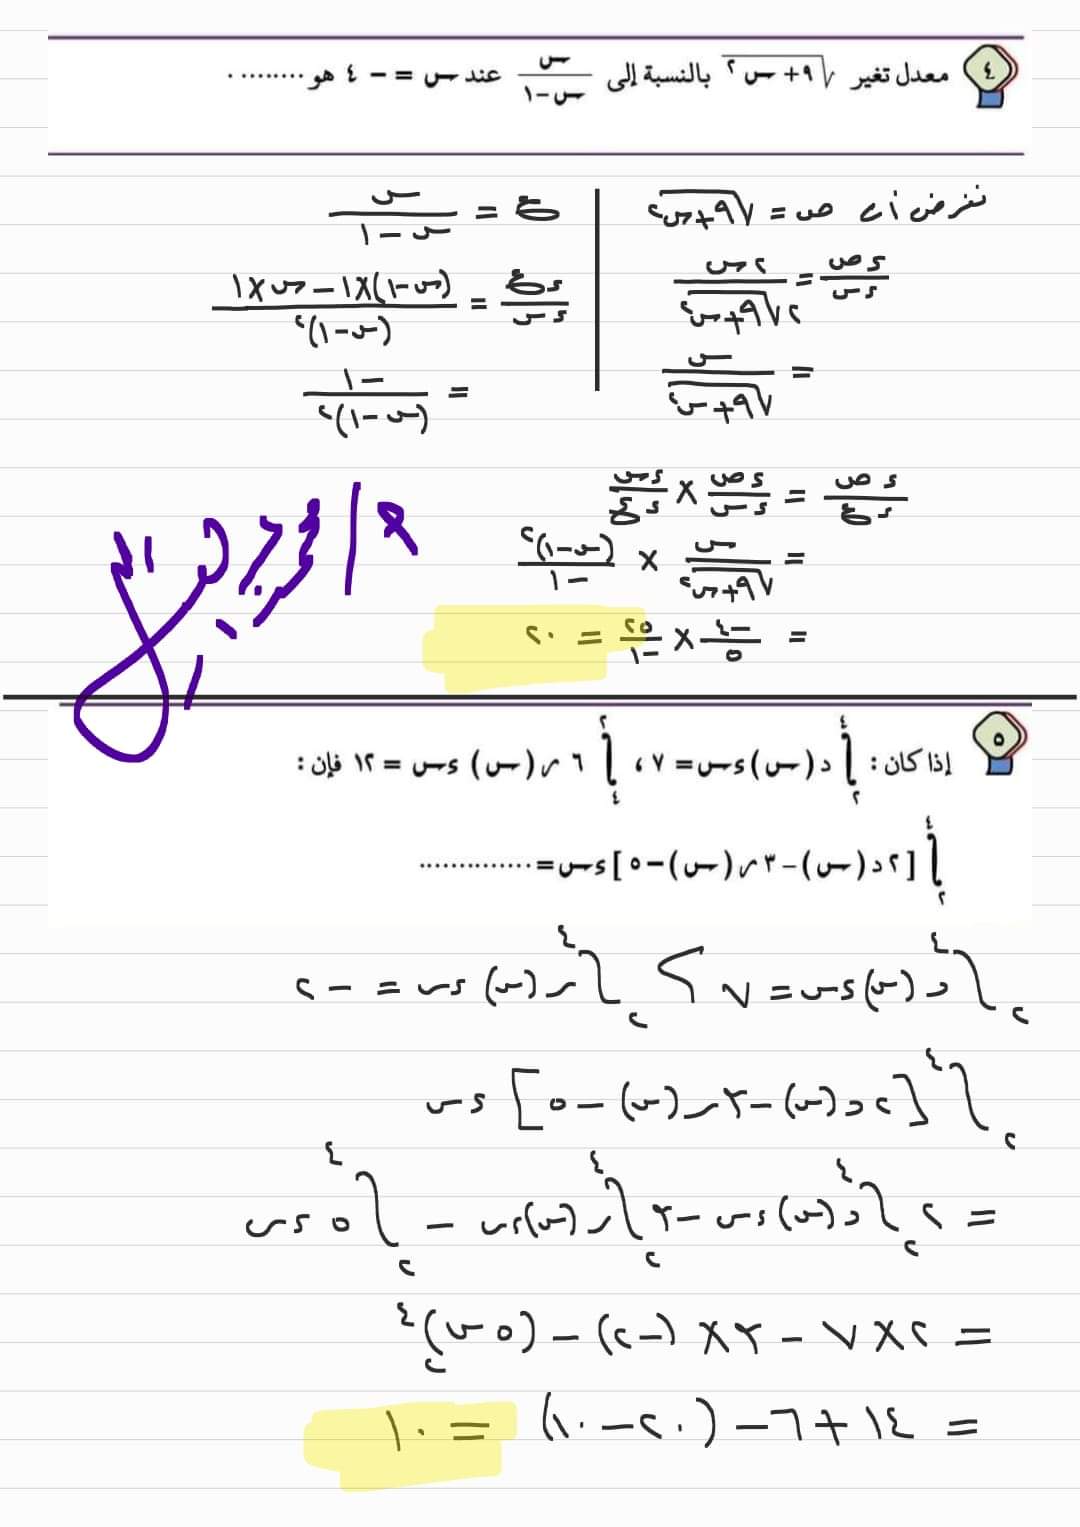 ٤ معدل تغير √(٩+س٢) بالنسبة إلى س/(س-١) عند س = -٤ هو ........
نفرض أن ص = √(٩+س٢)
ءص/ءس = ٢س/(٢√(٩+س٢))
= س/√(٩+س٢)
ع = س/(س-١)
ءع/ءس = ((س-١)×١-س×١)/(س-١)٢
= -١/(س-١)٢
ءص/ءع = ءص/ءس × ءس/ءع
= س/√(٩+س٢) × (س-١)٢/-١
= -٤/٥ × ٢٥/-١ = ٢٠
٥ إذا كان : ∫٢^٤ د(س) ءس = ٧ ، ∫٤^٢ ٦ ر(س) ءس = ١٢ فإن :
∫٢^٤ [٢د(س)-٣ر(س)-٥] ءس = ..............
∫٢^٤ د(س) ءس = ٧ ؟ ∫٢^٤ ر(س) ءس = -٢
∫٢^٤ [٢د(س)-٣ر(س)-٥] ءس
= ٢∫٢^٤ د(س) ءس -٣∫٢^٤ ر(س) ءس - ∫٢^٤ ٥ ءس
= ٢×٧ - ٣×(-٢) - (٥س)٢^٤
= ١٤+٦-(٢٠-١٠) = ١٠